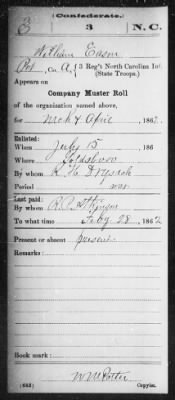 (Confederate.)
E 3 N.C.
William Eason
Pvt, Co. A, 3 Reg't North Carolina Inf.
(State Troops.)
Appears on
Company Muster Roll
of the organization named above,
for Mch & April, 1862
Enlisted:
When July 15, 186
Where Goldsboro
By whom
Period war
Last paid:
By whom R. P.
To what time Feby 28, 1862
Present or absent present
Remarks:
Book mark:
(642) Copyist.